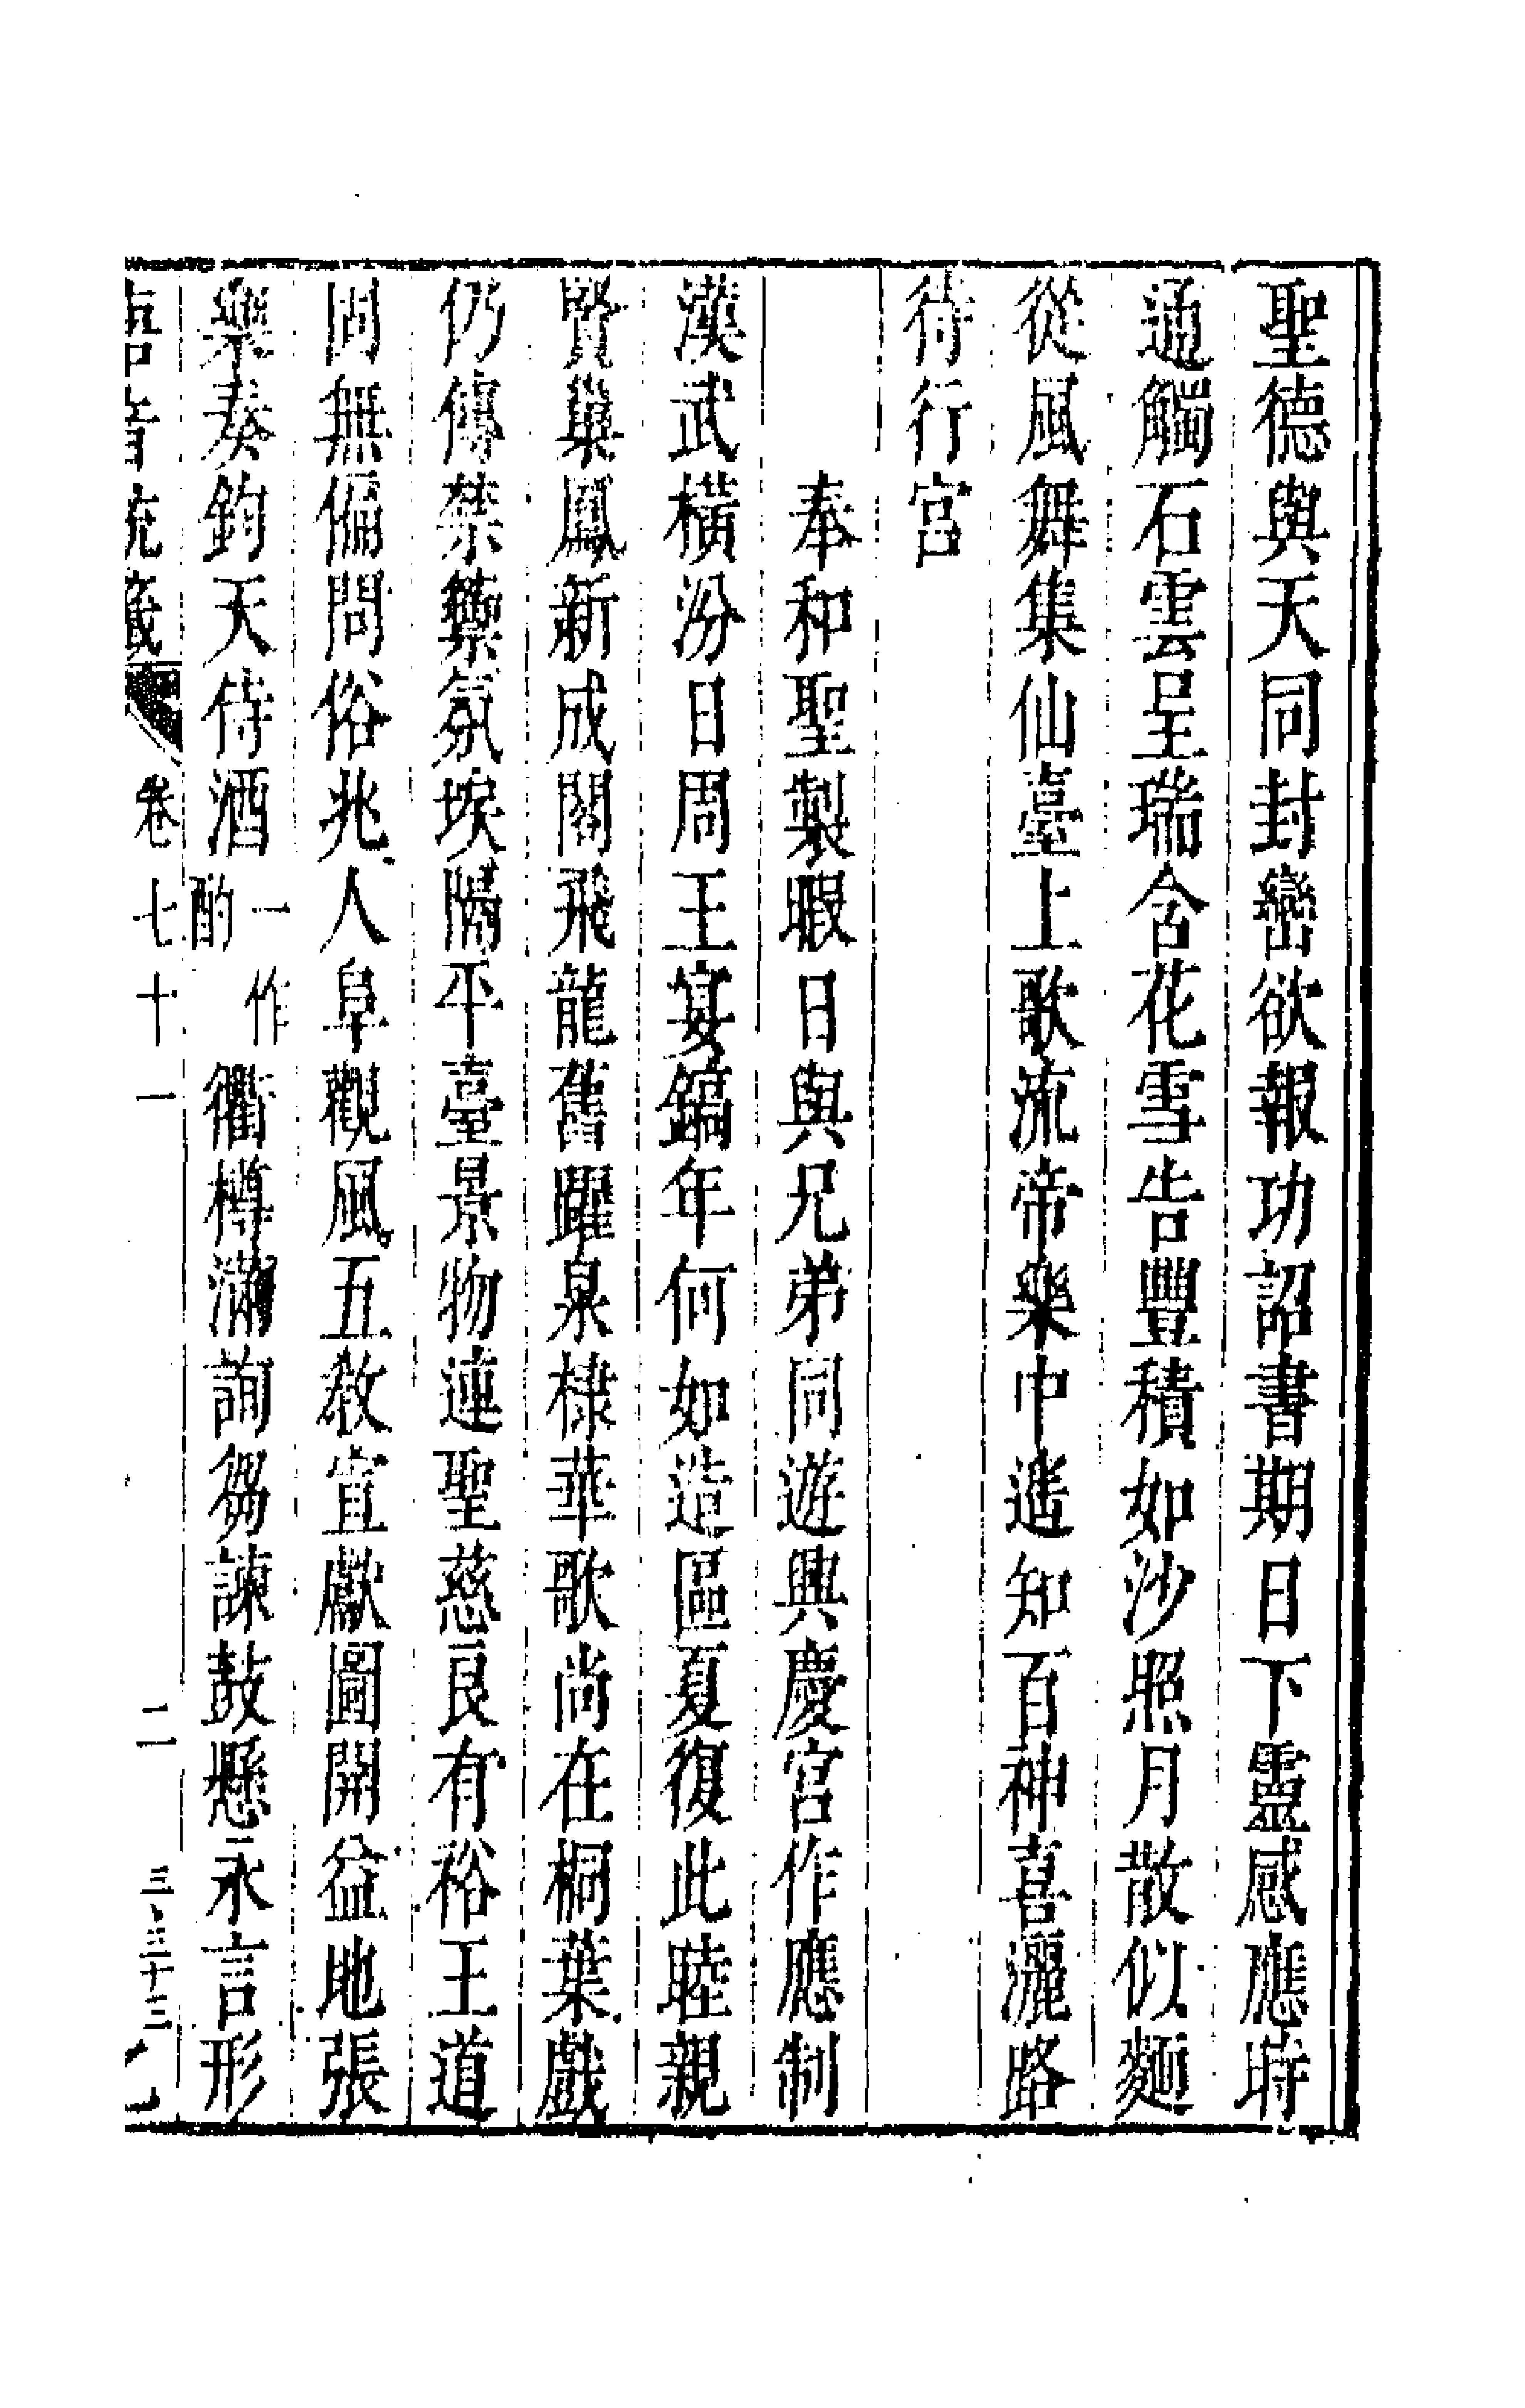 聖德與天同封巒欲報功詔書期日下靈感應時
通觸石雲呈瑞含花雪告豐積如沙照月散似麵
從風舞集仙臺上歌流帝樂中遙知百神喜灑路
待行宮
奉和聖製暇日與兄弟同遊興慶宮作應制
漢武橫汾日周王宴鎬年何如造區夏復此睦親
賢巢鳳新成閣飛龍舊躍泉棣華歌尚在桐葉戲
仍傳禁籞氛埃隔平臺景物連聖慈良有裕王道
固無偏問俗兆人阜觀風五教宣獻圖開益地張
樂奏鈞天侍酒一作酌衢樽滿詢芻諫鼓懸永言形
唐音統籤 卷七十一 二 三、三十三